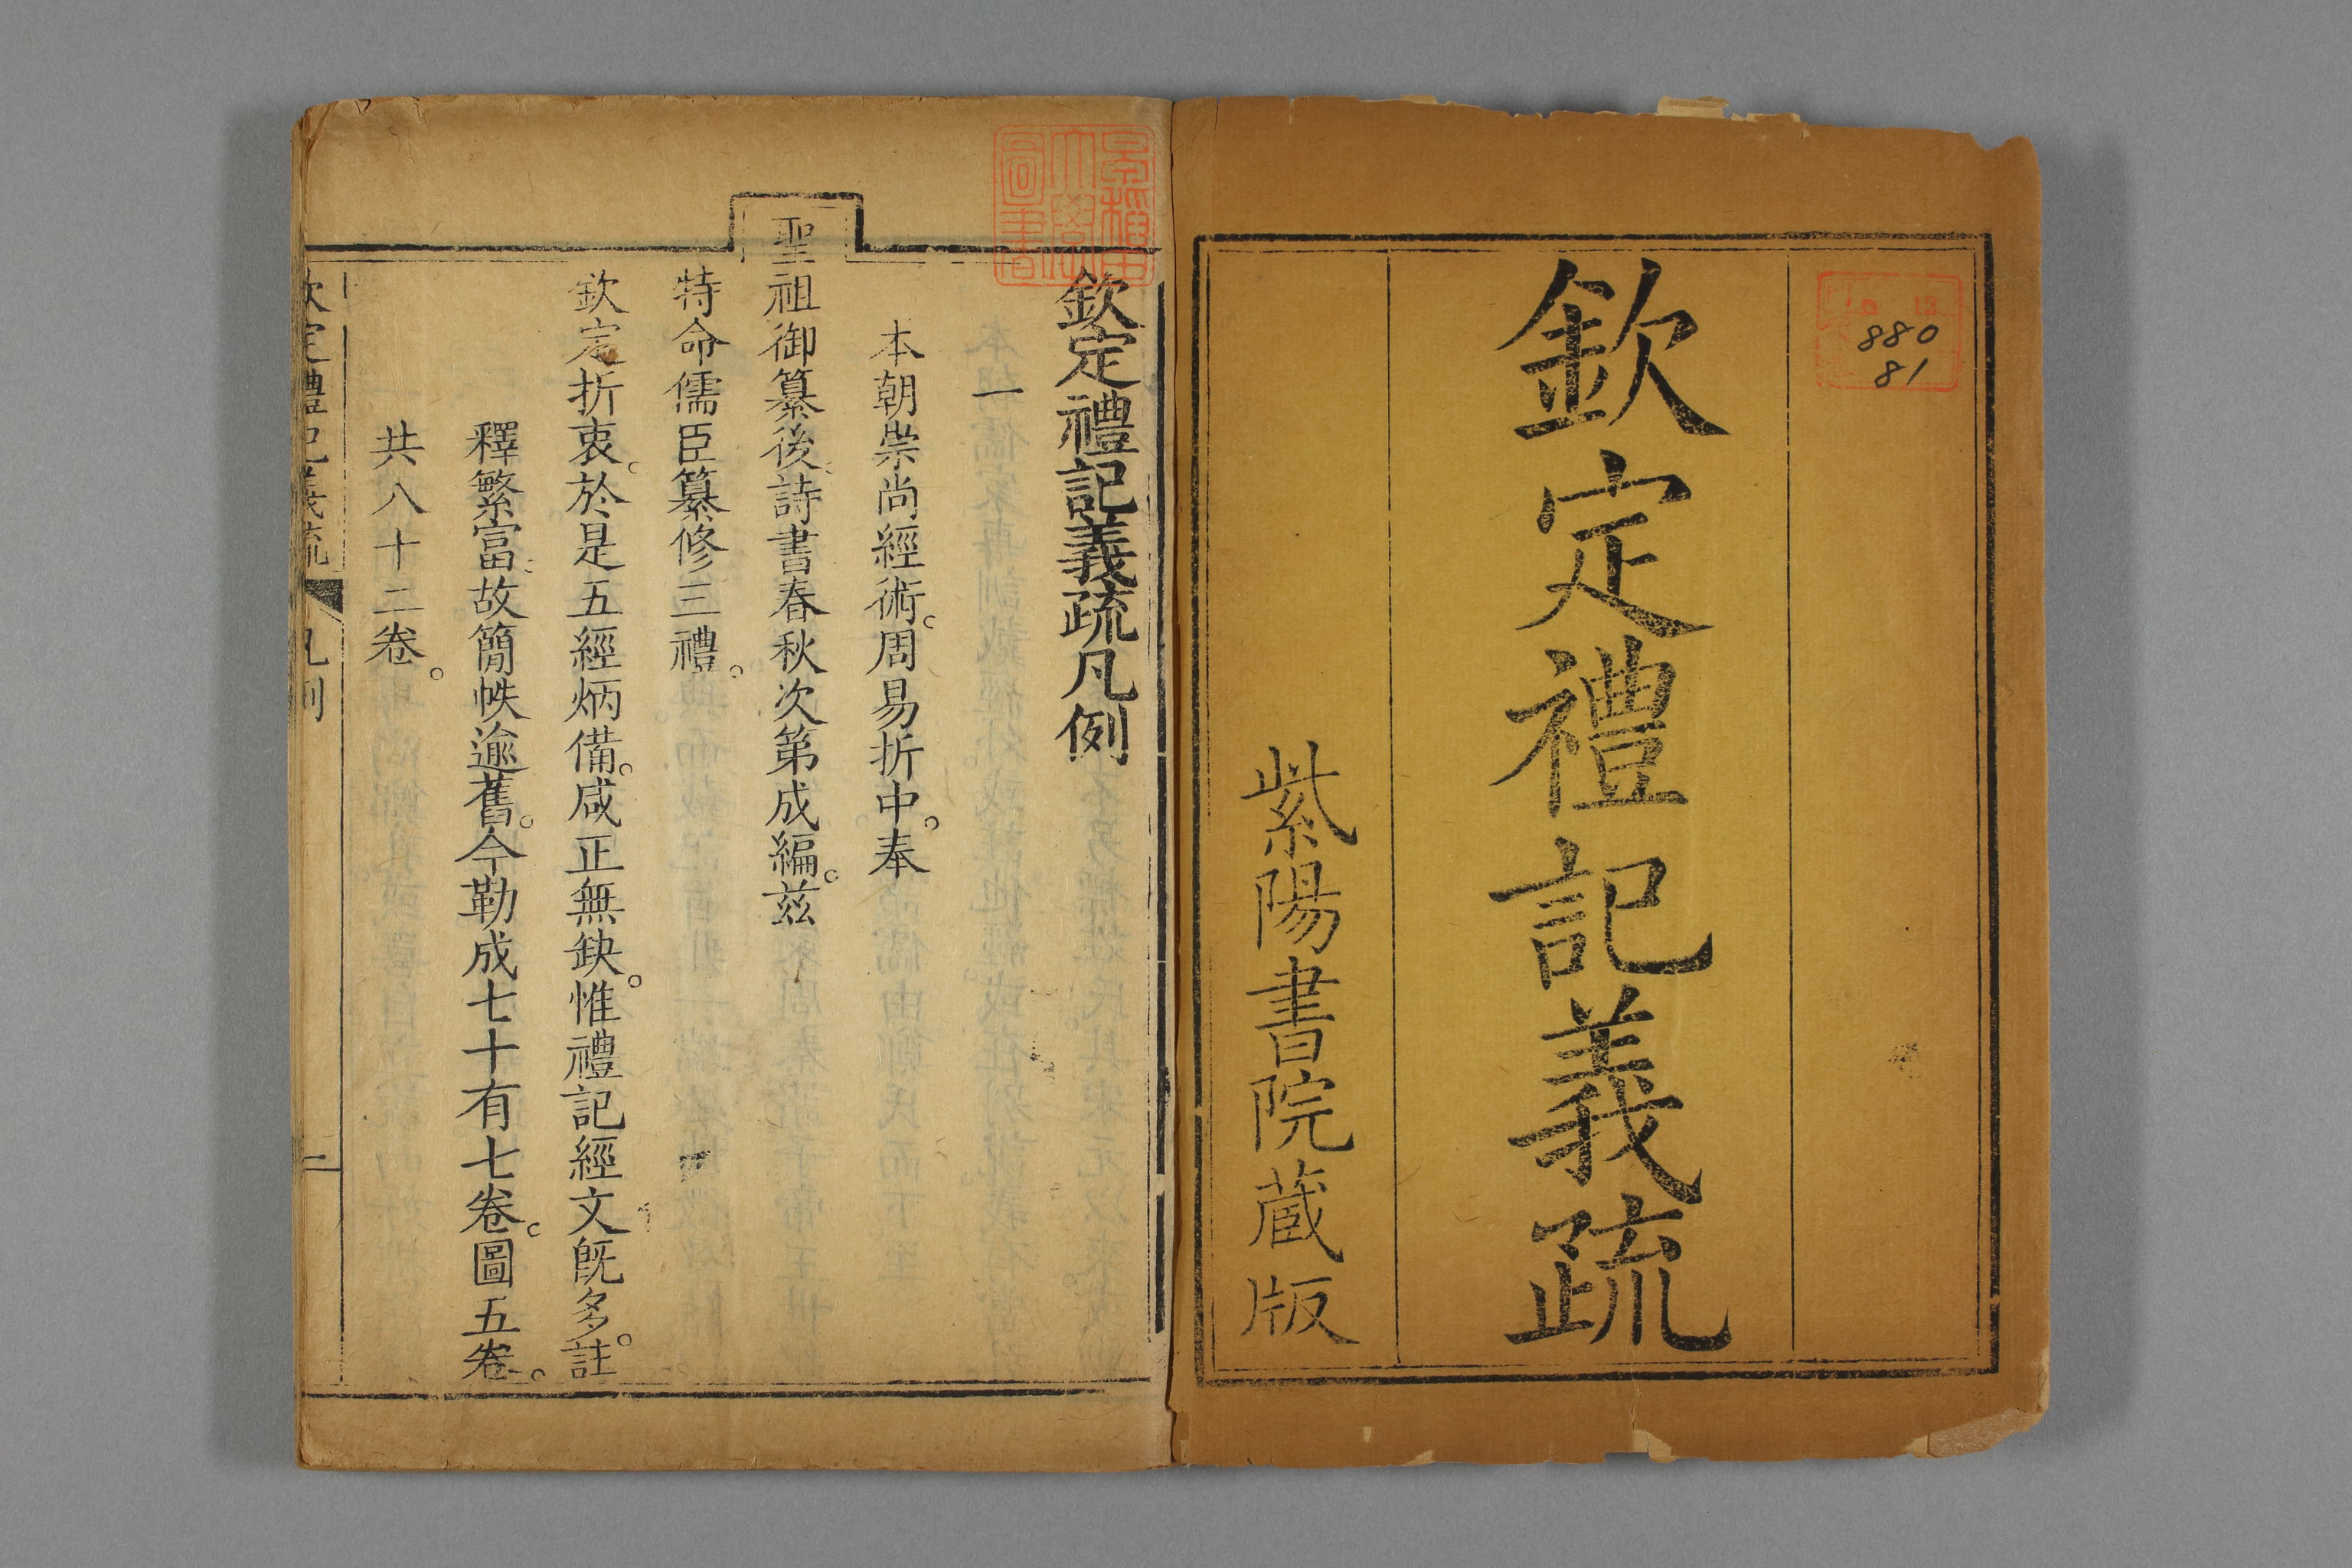 欽定禮記義疏
紫陽書院藏版
880
81
欽定禮記義疏凡例
一
本朝崇尚經術。周易折中。奉
聖祖御纂後。詩書春秋次第成編。兹
特命儒臣纂修三禮。
欽定折衷。於是五經炳備。咸正無缺。惟禮記經文既多。註
釋繁富。故簡帙逾舊。今勒成七十有七卷。圖五卷。
共八十二卷。
欽定禮記義疏 凡例 一